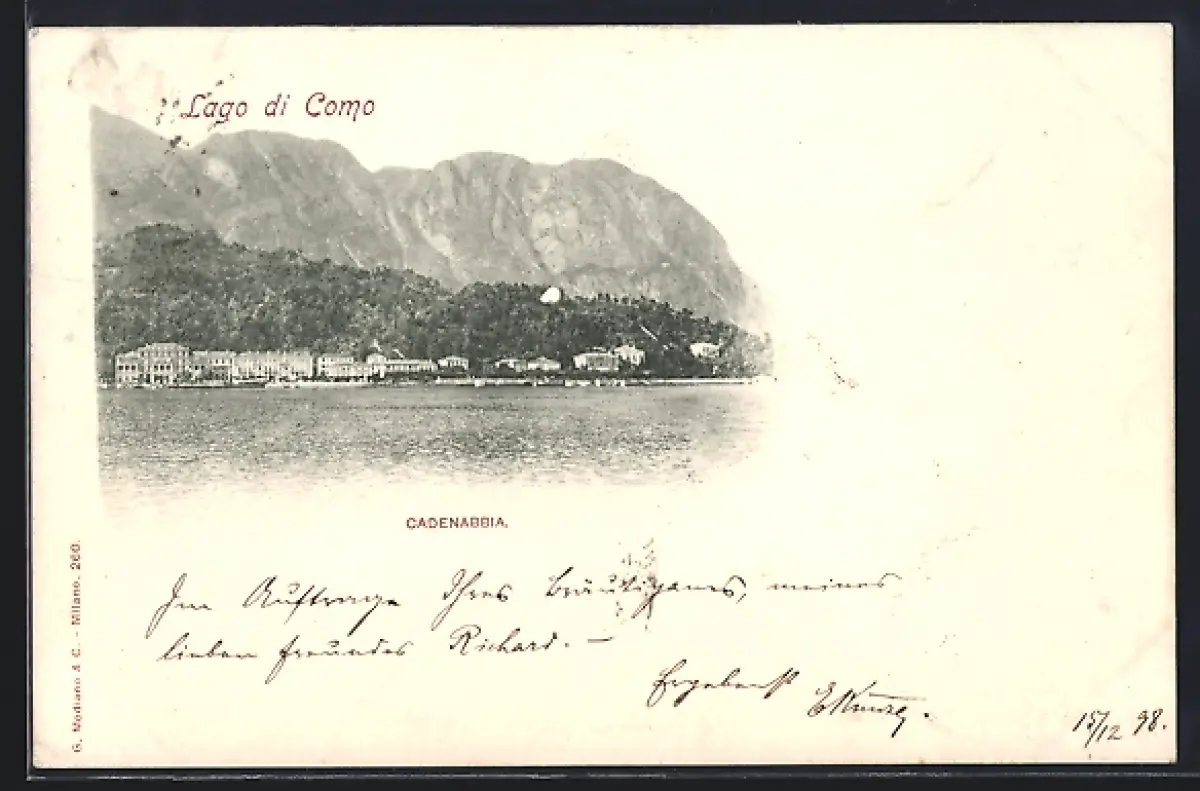 Lago di Como
CADENABBIA.
G. Modiano & C. - Milano. 260.
Im Auftrage Ihres Bräutigams, meines
lieben Freundes Richard. –
Ergebenst
15/12 98.